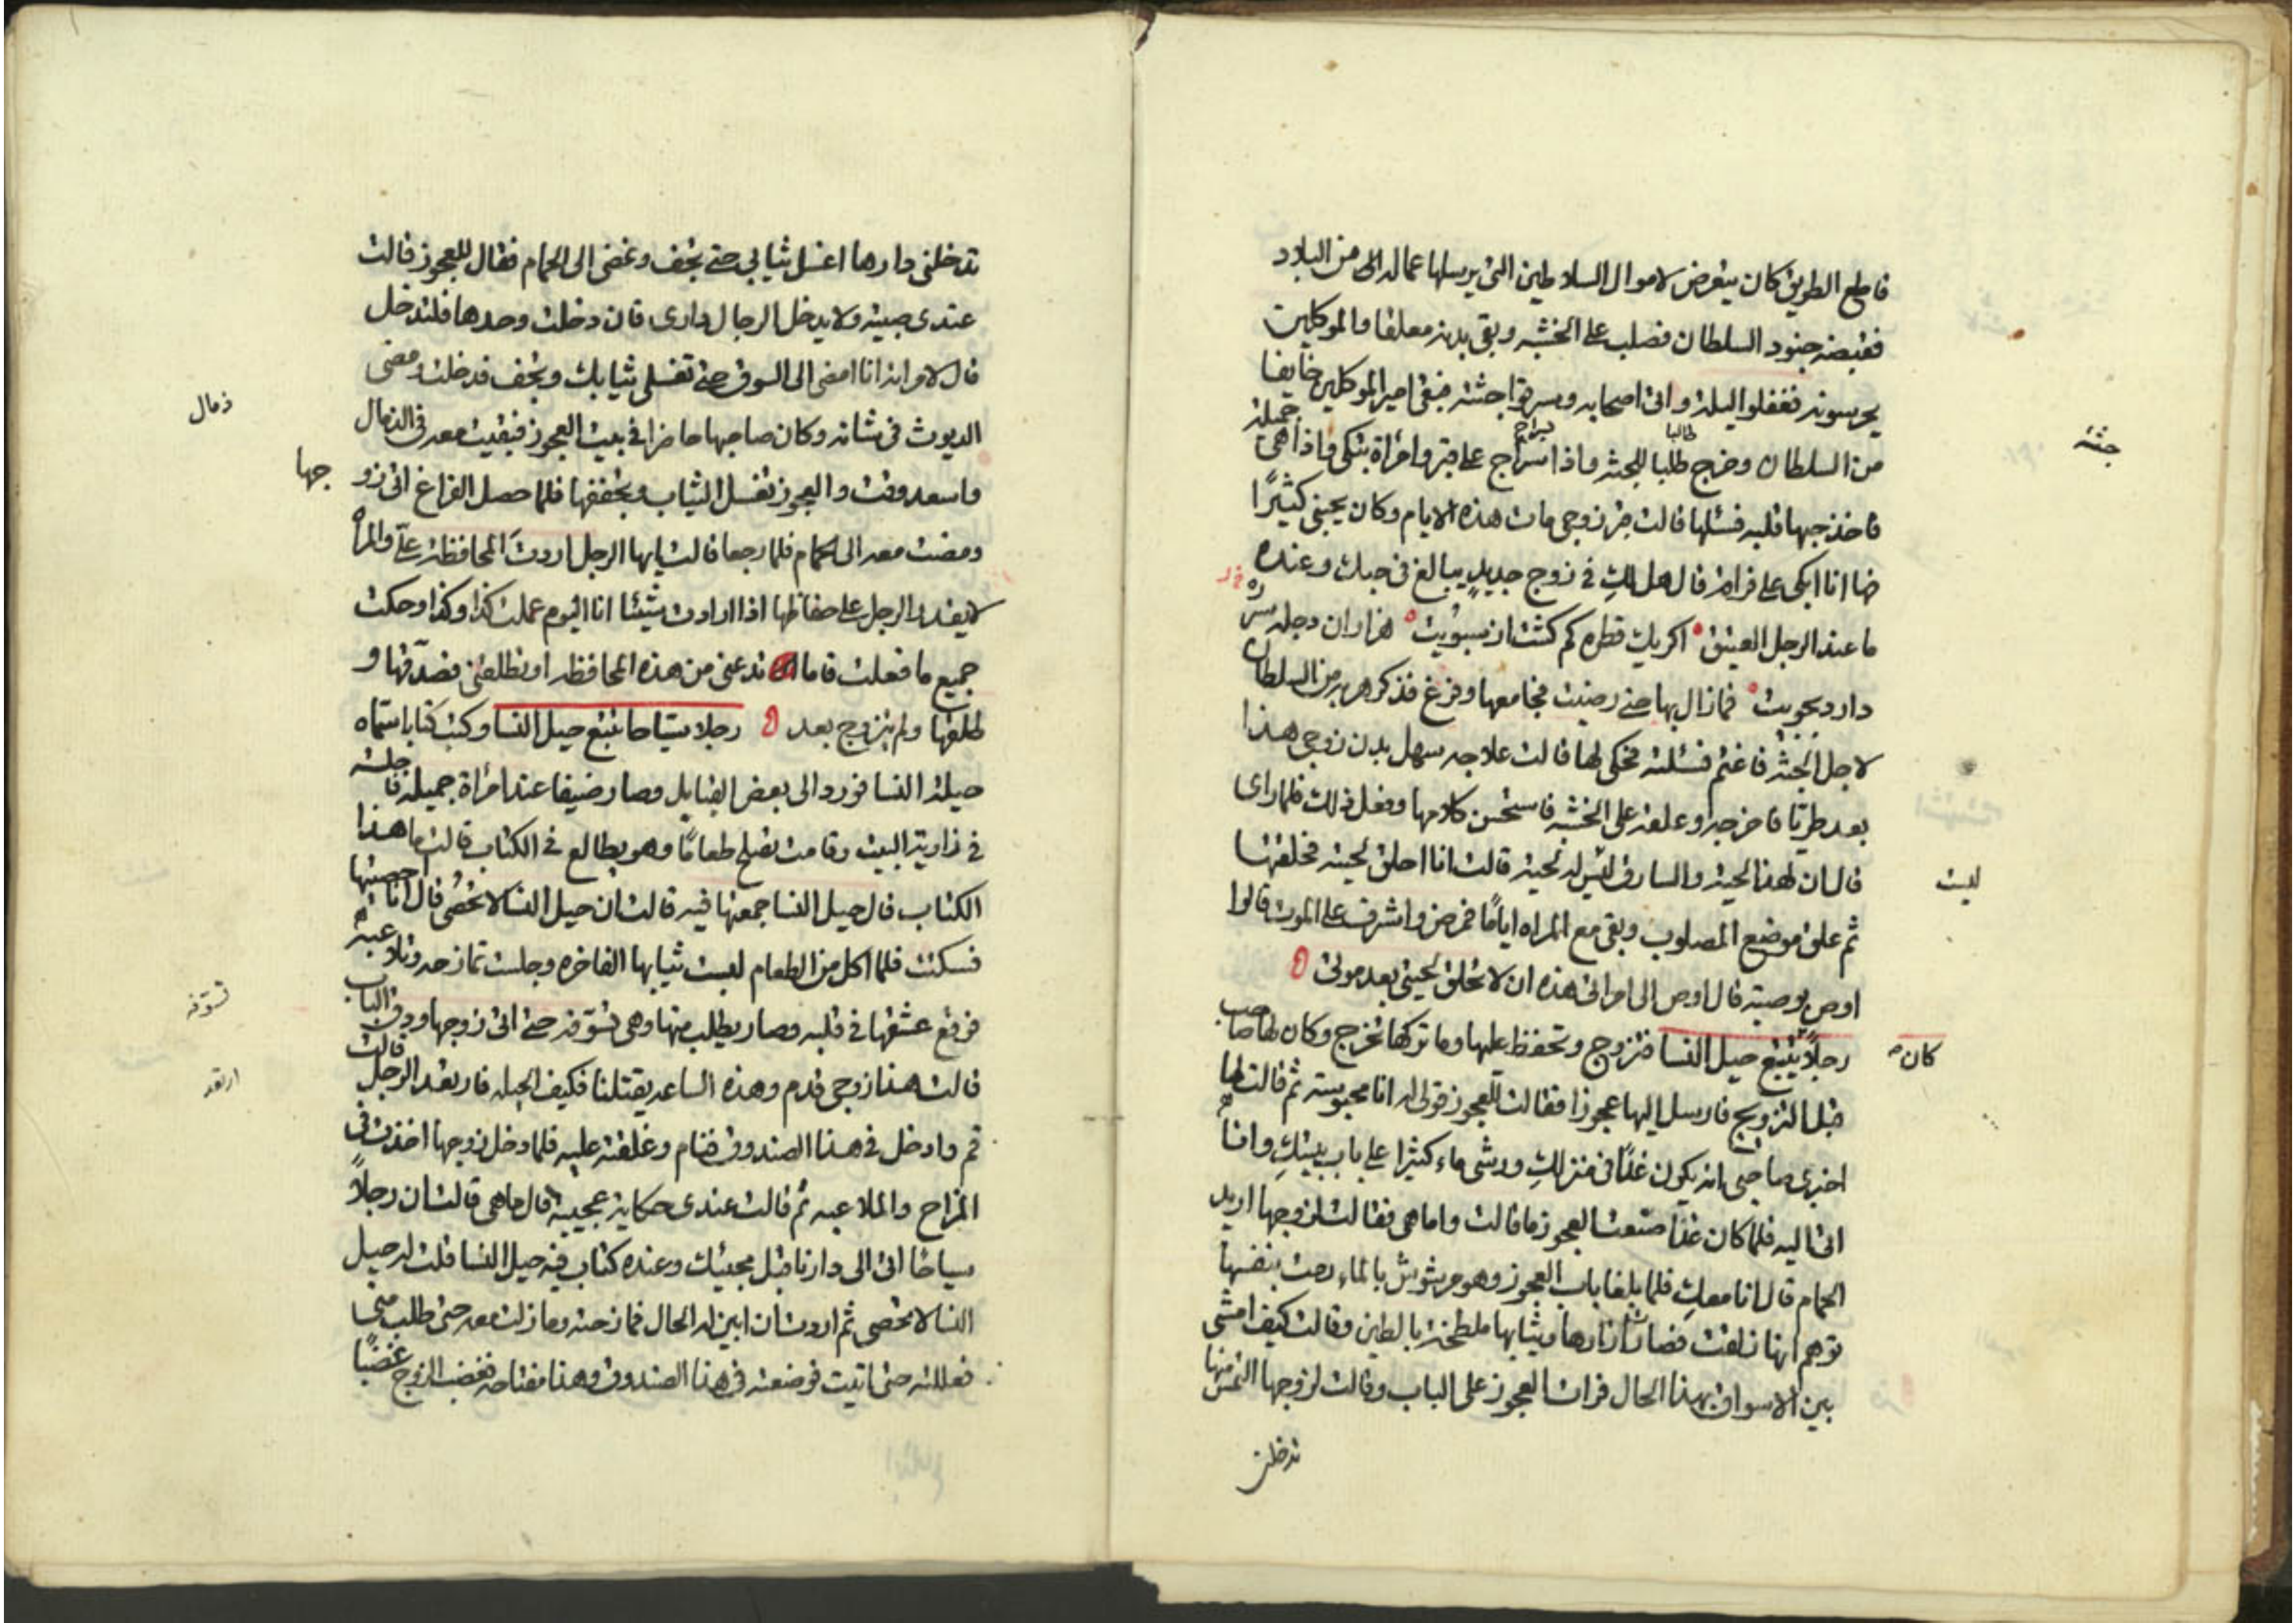 قاطع الطريق كان يتعرض لاموال السلاطين التى يرسلها عماله الى من البلاد
فقبضه جنود السلطان فصلب على الخشبه وبقى بدنه معلقا والموكلين
يحرسونه فغفلوا ليلة واتى اصحابه وسرقوا جثته فبقى امير الموكلين خايفا
من السلطان وخرج طلبا للجثه واذا سراج على قبر وامرأة تبكى واذا هى جميلة
طالبا
سراج
جثته
فاخذ حبها قلبه فسئلها قالت قبر زوجى مات هذه الايام وكان يحبنى كثيرًا
فها انا ابكى على فراقه قال هل لكِ فى زوج جديدٍ يبالغ فى حبك وعنده
ما عند الرجل العتيق اكر يك قطره كم كشت از سبويت هزاران دجله سر
دارد بجويت فمازال بها حتى رضيت فجامعها وفرغ فذكر هربه من السلطان
لاجل الجثه فاغتم فسئلته فحكى لها قالت علاجه سهل بدن زوجى هذا
بعد طريّا فاخرجه وعلقه على الخشبه فاستحسن كلامها وفعل ذلك فلما راى
قال ان لهذا لحية والسارق ليس له لحية قالت انا احلق لحيته فحلقتها
ليست
ثم علق موضع المصلوب وبقى مع المراه ايامًا فمرض واشرف على الموت قالوا
اوص بوصية قال اوصى الى امراتى هذه ان لا تحلق لحيتى بعد موتى
كان
رجلاً يتتبع حيل النسا فتزوج وتحفظ عليها وما تركها تخرج وكان لها صاحب
قبل التزويج فارسل اليها عجوزا فقالت للعجوز قولى له انا محبوسة ثم قالت لها
اخبرى صاحبى انه يكون غدًا فى منزلكِ ورشى ماء كثيرا على باب بيتكِ وانا
اتى اليه فلما كان غدًا صنعت العجوز ما قالت واما هى فقالت لزوجها اريد
الحمام قال انا معكِ فلما بلغا باب العجوز وهو مرشوش بالماء رمت بنفسها
توهم انها زلقت فصار ازارها وثيابها ملطخة بالطين وقالت كيف امشى
بين الاسواق بهذا الحال فرات العجوز على الباب وقالت لزوجها التمس منها
تدخلنى
تدخلنى دارها اغسل ثيابى حتى تجف ونمضى الى الحمام فقال للعجوز قالت
عندى صبية ولا يدخل الرجال دارى فان دخلت وحدها فلتدخل
قال لامرأته انا امضى الى السوق حتى تغسلى ثيابك وتجف فدخلت ومضى
الديوث فى شانه وكان صاحبها حاضرا فى بيت العجوز فبقيت معه فى الذمال
ذمال
واسعد وقت والعجوز تغسل الثياب وتجففها فلما حصل الفراغ اتى زو
جها
ومضت معه الى الحمام فلما رجعا قالت يايها الرجل اردتَ المحافظة علىّ والمرأة
لا يقدر الرجل على حفاظها اذا ارادت شيئا انا اليوم عملت كذا وكذا وحكت
جميع ما فعلت فاما تدعنى من هذه المحافظه او تطلقنى فصدّقها و
طلقها ولم يتزوج بعد رجلا سيّاحا تتبع حيل النسا وكتب كتابا سمّاه
حيلة النسا فورد الى بعض القبايل وصار ضيفا عند امرأة جميلة فاجلسته
فى زاوية البيت وقامت تصلح طعامًا وهو يطالع فى الكتاب قالت ما هذا
الكتاب قال حيل النسا جمعتها فيه قالت ان حيل النسا لا تحصى قال انا احصيتها
فسكتت فلما اكل من الطعام لبست ثيابها الفاخره وجلست تمازحه وتلاعبه
فوقع عشقها فى قلبه وصار يطلب منها وهى تسوّفه حتى اتى زوجها ودق الباب
تسوّفه
قالت هذا زوجى قدم وهذه الساعه يقتلنا فكيف الحيله فارتعد الرجل قالت
ارتعد
قم وادخل فى هذا الصندوق فنام وغلقته عليه فلما دخل زوجها اخذت فى
المزاح والملاعبه ثم قالت عندى حكاية عجيبة قال ما هى قالت ان رجلاً
سياحا اتى الى دارنا قبل مجيئك وعنده كتاب فيه حيل النسا قلت له حيل
النسا لا تحصى ثم اردت ان ابين له الحال فمازحته ومازلت معه حتى طلب منى
فعللته حتى اتيت فوضعته فى هذا الصندوق وهذا مفتاحه فغضب الزوج غضبًا